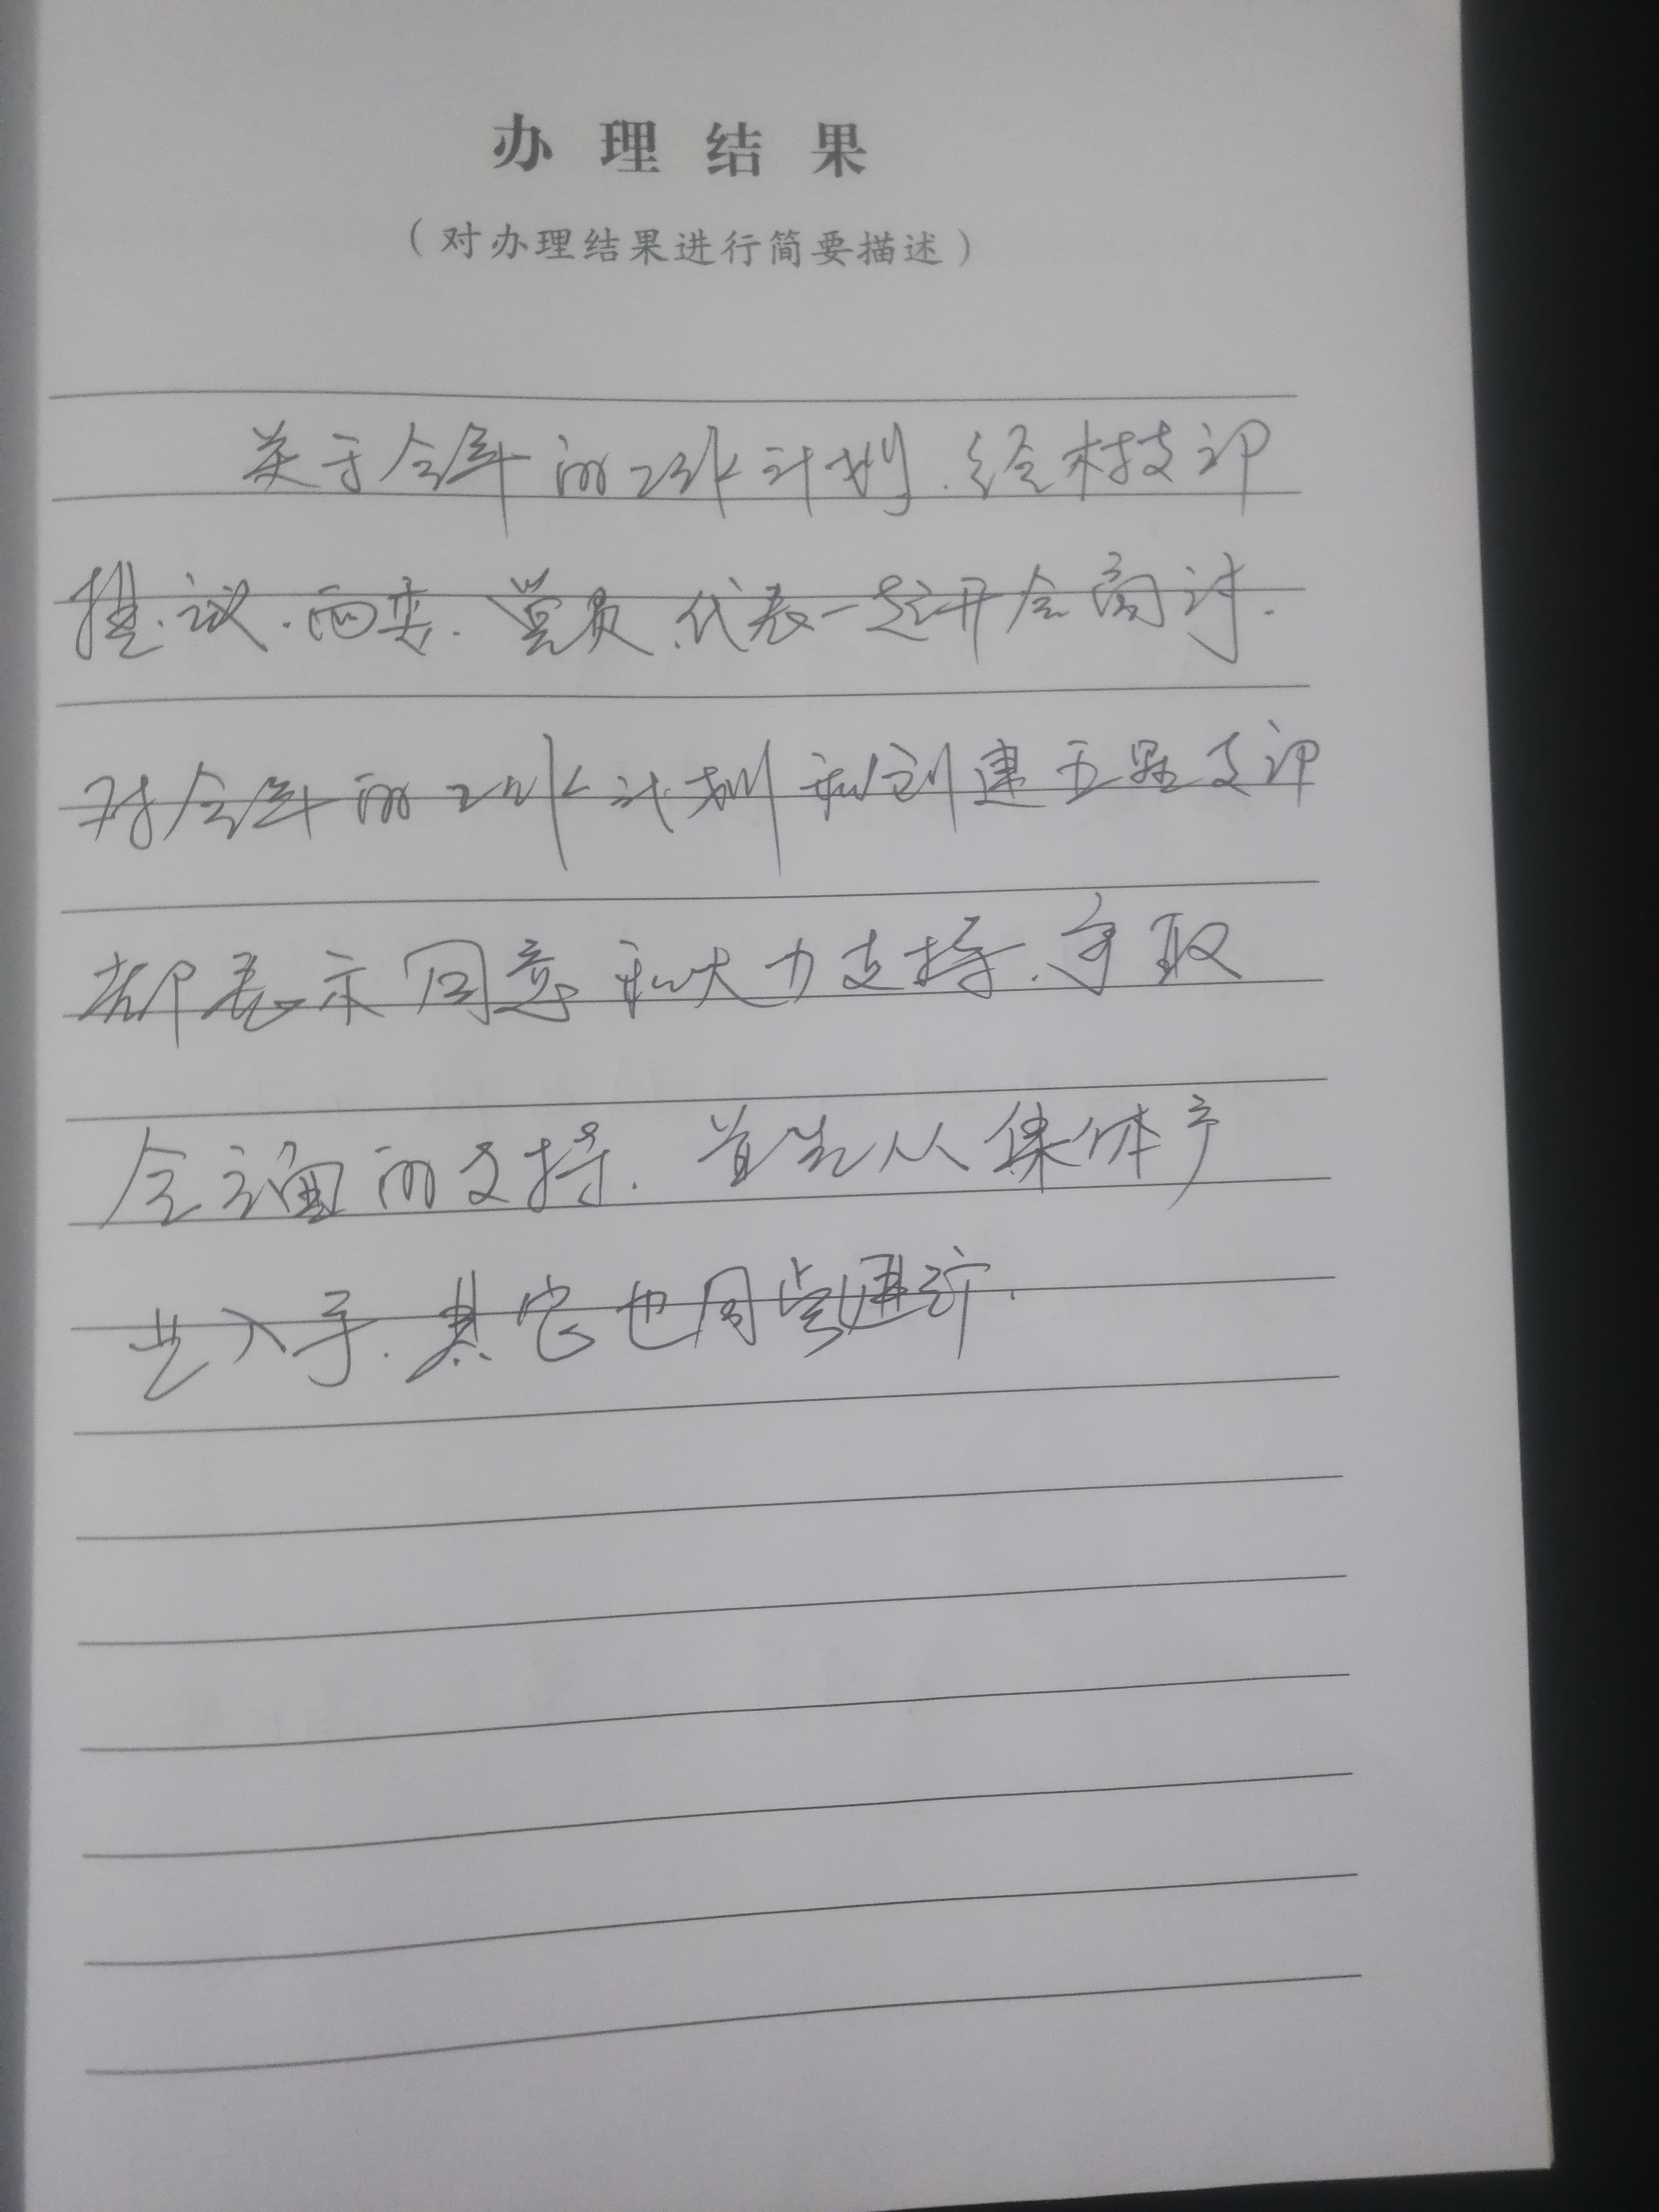 办理结果
（对办理结果进行简要描述）
关于今年的工作计划.经村支部
提议.两委.党员.代表一起开会商讨.
对今年的工作计划和创建五星支部
都表示同意和大力支持.争取
全方面的支持.首先从集体产
业入手.其它也同步进行.